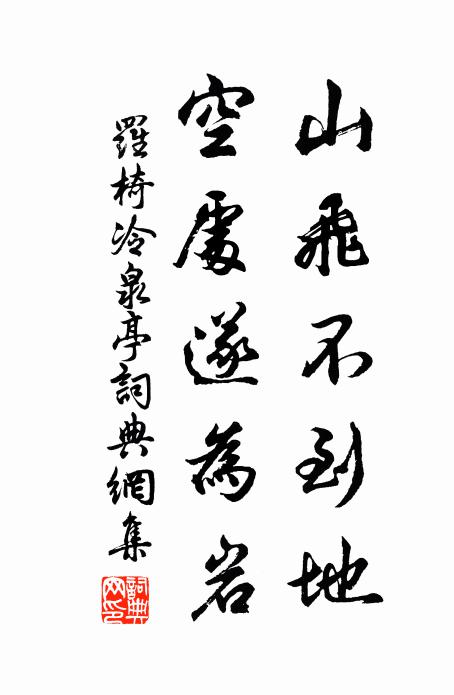 山飛不到地
空處遂為岩
羅椅冷泉亭詞典網集
詞典網印